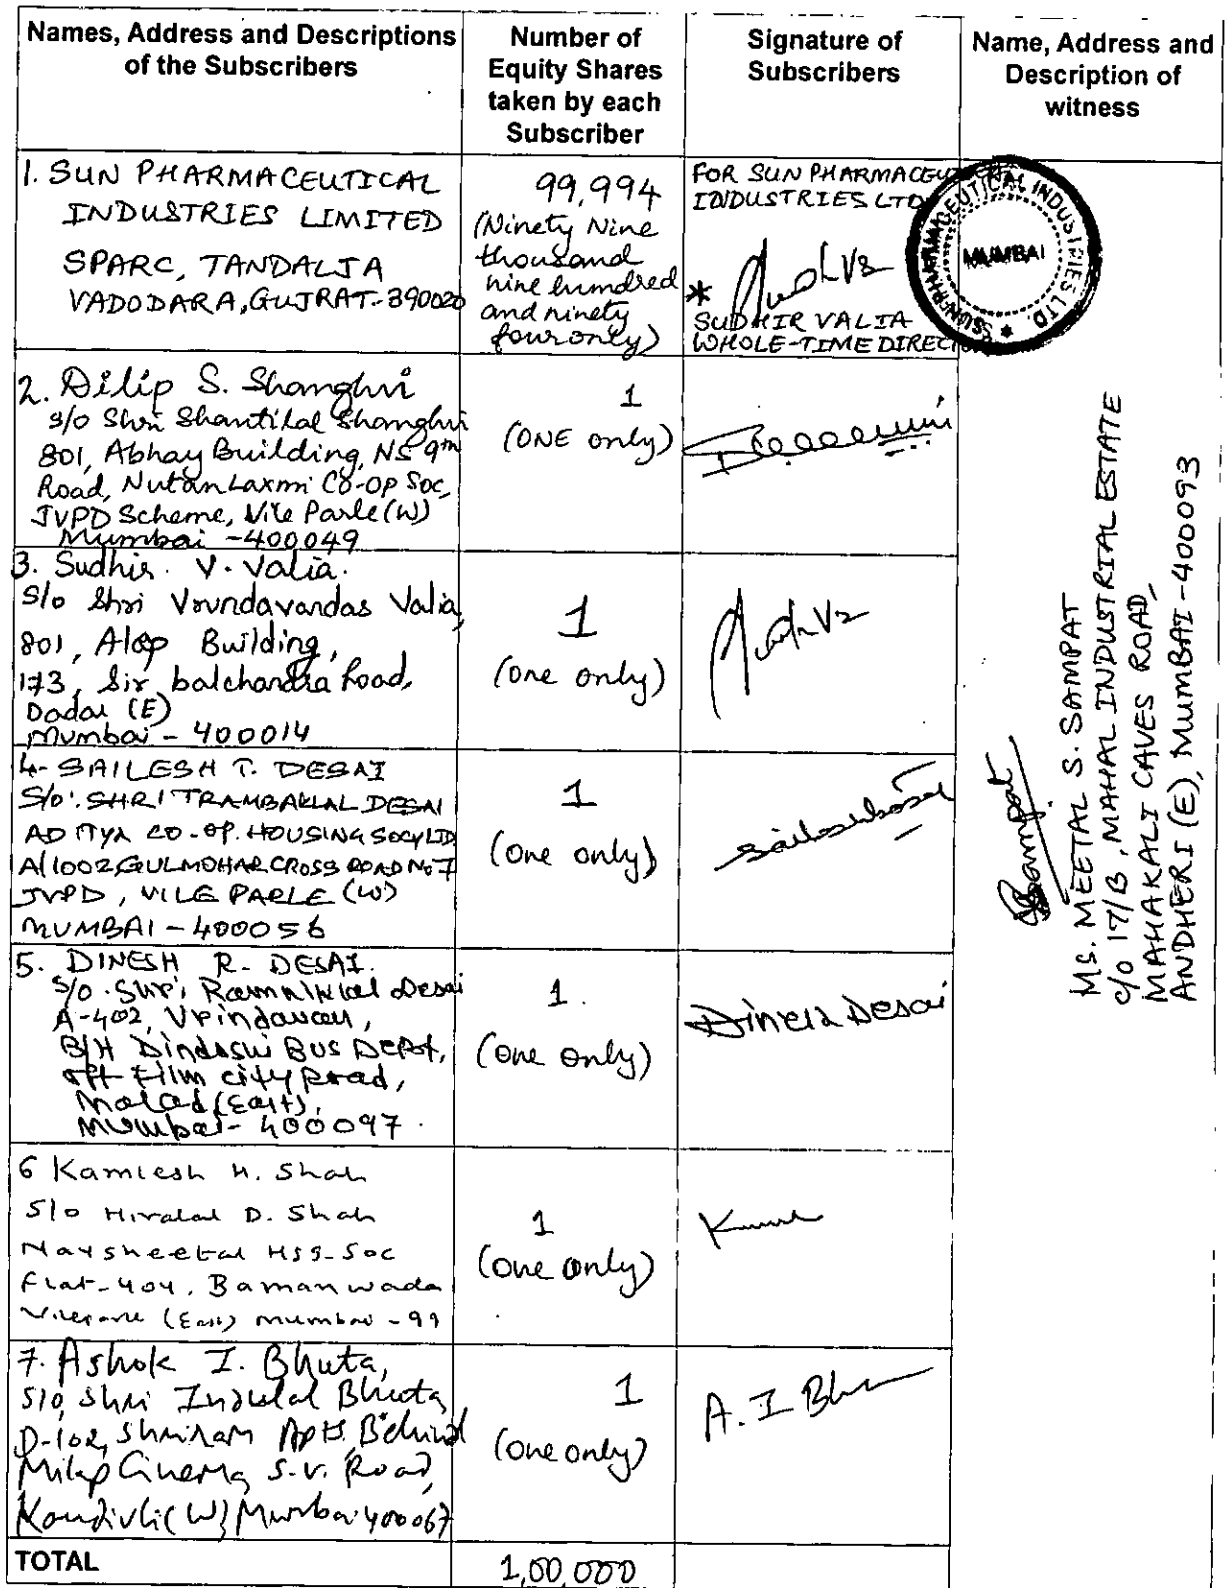 Names, Address and Descriptions
of the Subscribers
Number of
Equity Shares
taken by each
Subscriber
Signature of
Subscribers
Name, Address and
Description of
witness
1. SUN PHARMACEUTICAL
INDUSTRIES LIMITED
SPARC, TANDALJA
VADODARA, GUJRAT-390020
99,994
(Ninety Nine
thousand
nine hundred
and ninety
four only)
FOR SUN PHARMACEU
INDUSTRIES LTD
*
SUDHIR VALIA
WHOLE-TIME DIREC
SUN PHARMACEUTICAL INDUSTRIES LTD. *
MUMBAI
2. Dilip S. Shanghvi
S/o Shri Shantilal Shanghvi
801, Abhay Building, NS 9th
Road, Nutan Laxmi Co-op Soc,
JVPD Scheme, Vile Parle (W)
Mumbai -400049
1
(ONE only)
3. Sudhir. V. Valia.
S/o Shri Vrundavandas Valia,
801, Alop Building,
173, Sir balchandra Road,
Dadar (E)
Mumbai - 400014
1
(one only)
4- SAILESH T. DESAI
S/o. SHRI TRAMBAKLAL DESAI
ADITYA CO-OP. HOUSING SOCY LTD
A/1002 GULMOHAR CROSS ROAD No 7
JVPD, VILE PARLE (W)
MUMBAI - 400056
1
(one only)
5. DINESH R. DESAI.
S/o. Shri Ramniklal Desai
A-402, Vrindavan,
B/H Dindoshi Bus Depot,
off Film city Road,
Malad (East),
Mumbai- 400097.
1.
(one only)
Dinesh Desai
6 Kamlesh H. Shah
S/o Hiralal D. Shah
Navsheetal HSS-Soc
Flat-404, Bamanwada
Vileparle (East) Mumbai -99
1
(one only)
7. Ashok I. Bhuta,
S/o, Shri Indulal Bhuta,
D-102, Shriram Apts, Behind
Milap Cinema, S.V. Road,
Kandivli (W), Mumbai 400067
1
(one only)
A. I Bhu
Sampat
MS. MEETAL S. SAMPAT
c/o 17/B, MAHAL INDUSTRIAL ESTATE
MAHAKALI CAVES ROAD,
ANDHERI (E), MUMBAI-400093
TOTAL
1,00,000